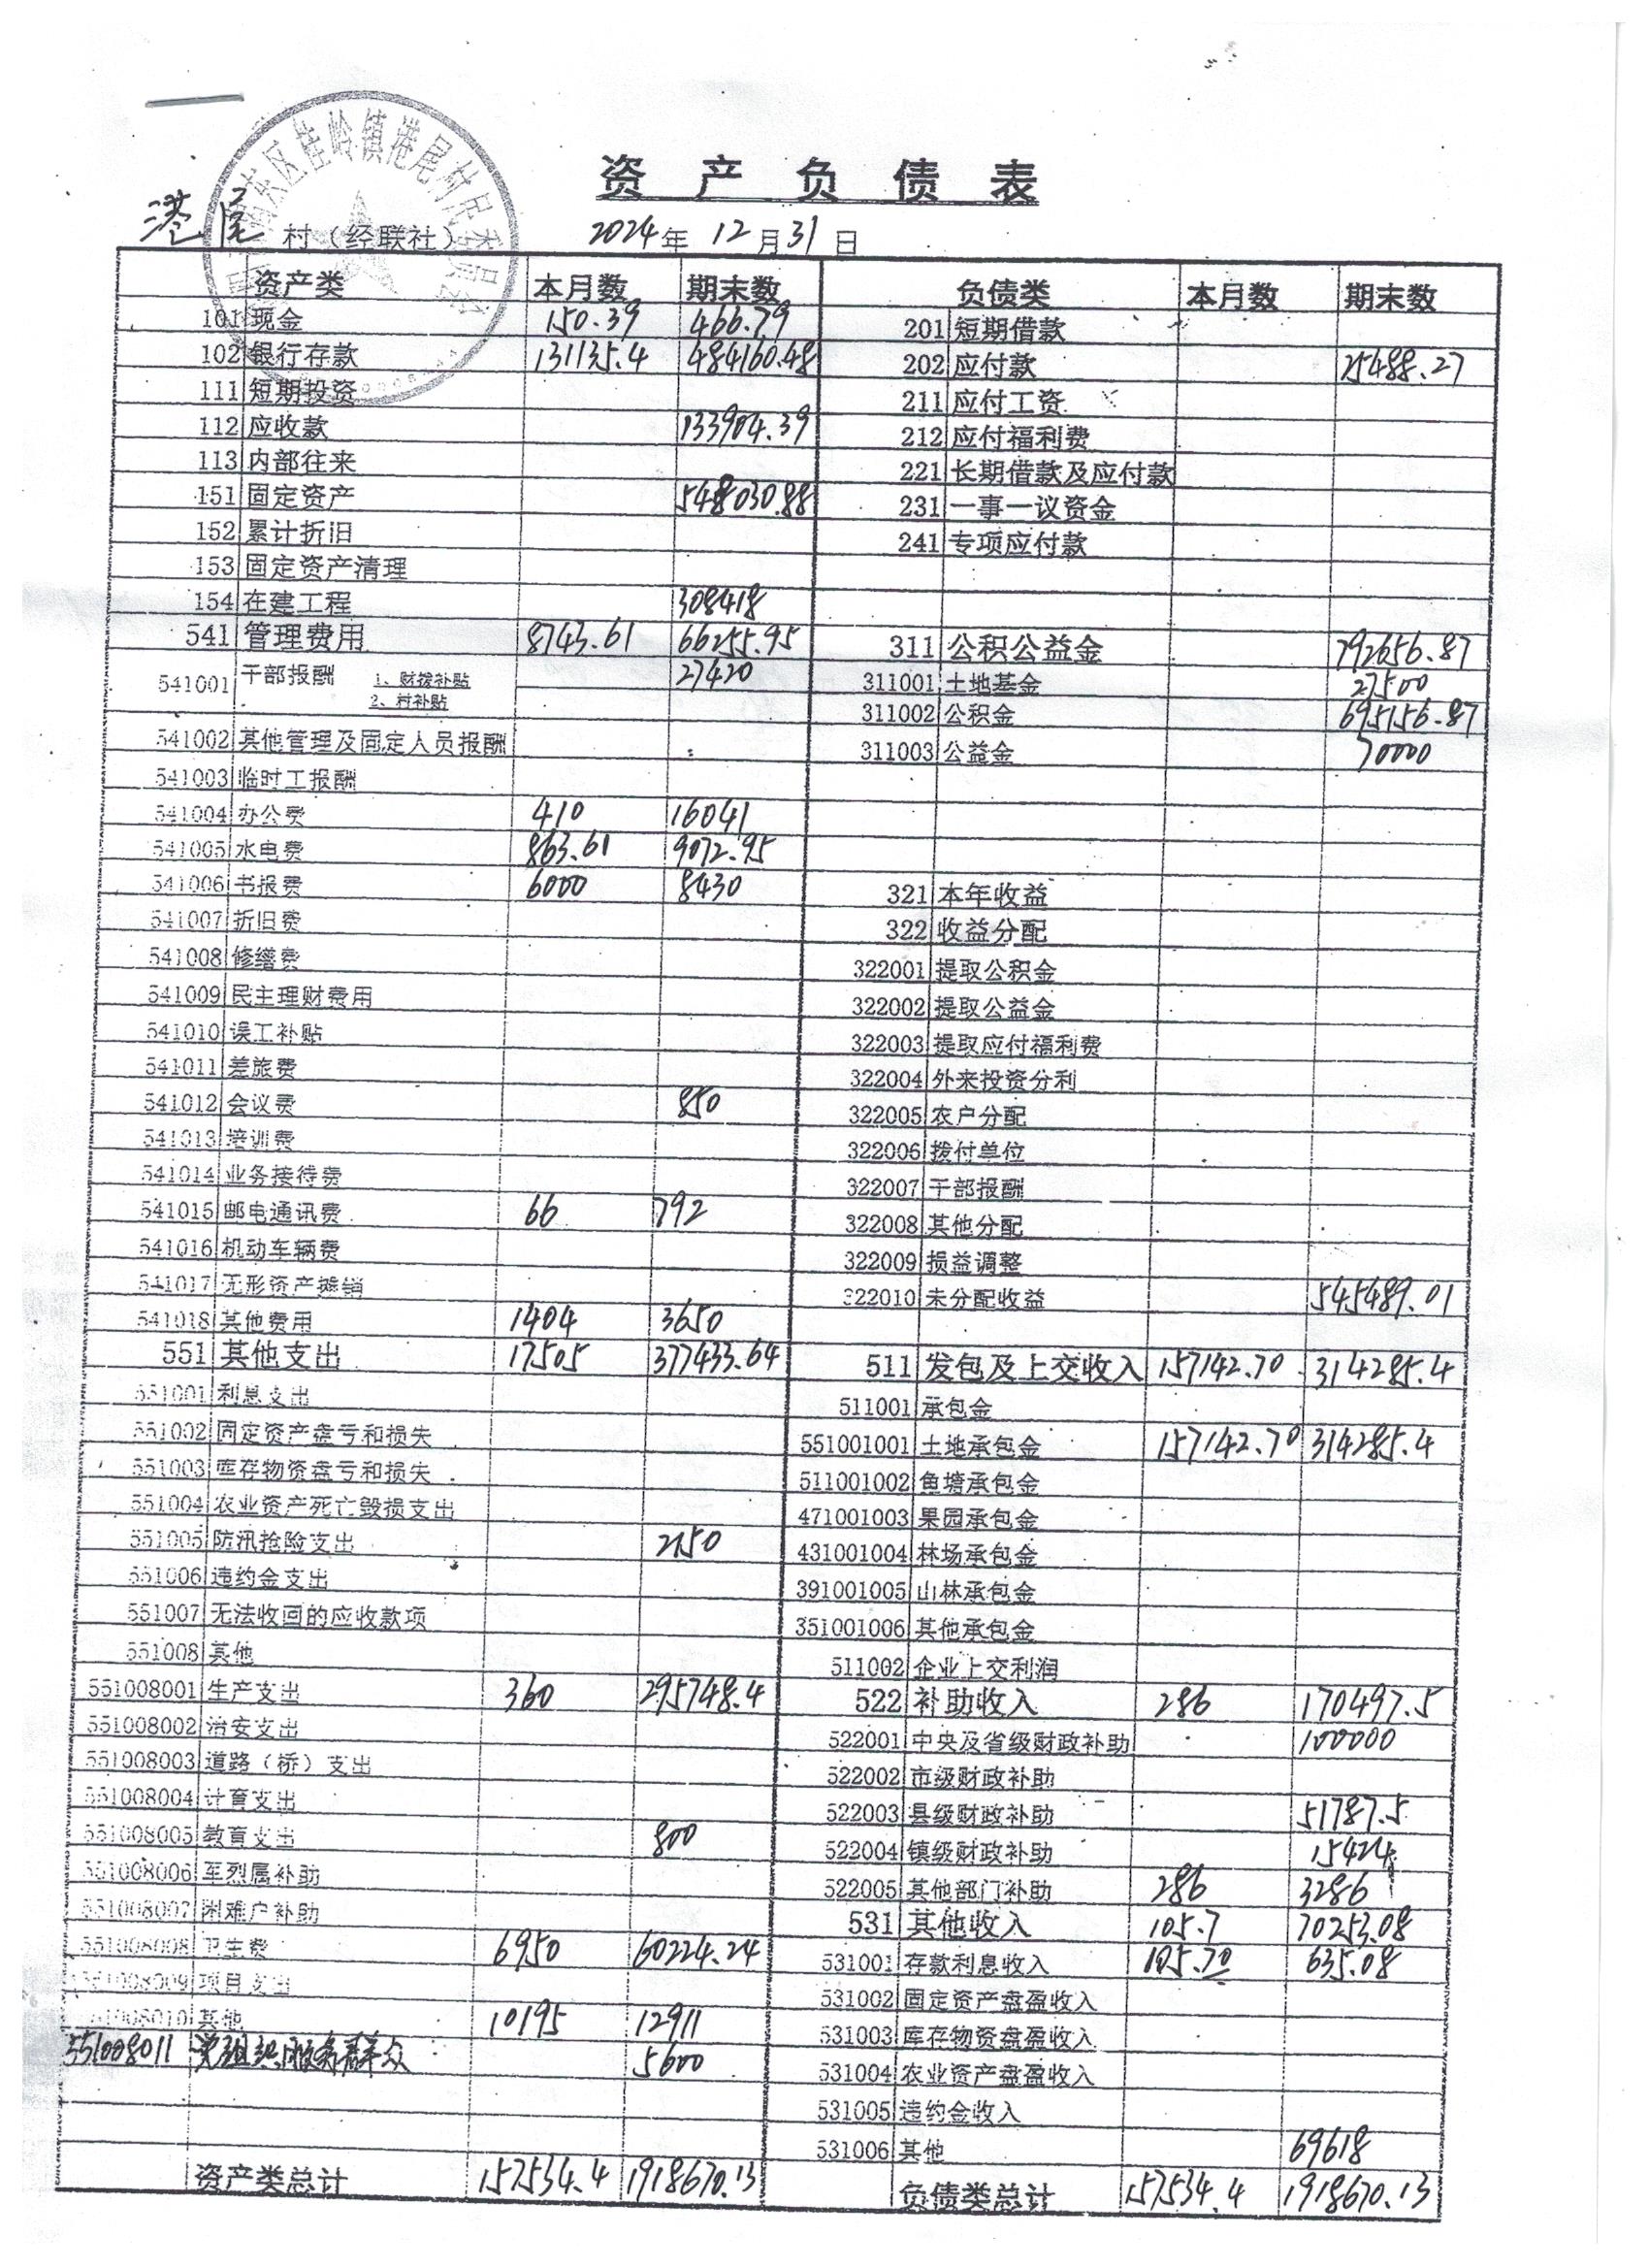 资产负债表
港尾村（经联社） 2024年12月31日
东区桂岭镇港尾村民委员会
资产类 本月数 期末数 负债类 本月数 期末数
101 现金 150.39 466.79 201 短期借款
102 银行存款 131135.4 484160.48 202 应付款 25488.27
111 短期投资 211 应付工资
112 应收款 133904.39 212 应付福利费
113 内部往来 221 长期借款及应付款
151 固定资产 548030.88 231 一事一议资金
152 累计折旧 241 专项应付款
153 固定资产清理
154 在建工程 308418
541 管理费用 8743.61 66255.95 311 公积公益金 792656.87
541001 干部报酬 1、财拨补贴 27420 311001 土地基金 27500
2、村补贴 311002 公积金 695156.87
541002 其他管理及固定人员报酬 311003 公益金 70000
541003 临时工报酬
541004 办公费 410 16041
541005 水电费 863.61 9072.95
541006 书报费 6000 8430 321 本年收益
541007 折旧费 322 收益分配
541008 修缮费 322001 提取公积金
541009 民主理财费用 322002 提取公益金
541010 误工补贴 322003 提取应付福利费
541011 差旅费 322004 外来投资分利
541012 会议费 850 322005 农户分配
541013 培训费 322006 拨付单位
541014 业务接待费 322007 干部报酬
541015 邮电通讯费 66 792 322008 其他分配
541016 机动车辆费 322009 损益调整
541017 无形资产摊销 322010 未分配收益 545489.01
541018 其他费用 1404 3650
551 其他支出 17505 377433.64 511 发包及上交收入 157142.70 314285.4
551001 利息支出 511001 承包金
551002 固定资产盘亏和损失 551001001 土地承包金 157142.70 314285.4
551003 库存物资盘亏和损失 511001002 鱼塘承包金
551004 农业资产死亡毁损支出 471001003 果园承包金
551005 防汛抢险支出 2150 431001004 林场承包金
551006 违约金支出 391001005 山林承包金
551007 无法收回的应收款项 351001006 其他承包金
551008 其他 511002 企业上交利润
551008001 生产支出 360 295748.4 522 补助收入 286 170497.5
551008002 治安支出 522001 中央及省级财政补助 100000
551008003 道路（桥）支出 522002 市级财政补助
551008004 计育支出 522003 县级财政补助 51787.5
551008005 教育支出 800 522004 镇级财政补助 15424
551008006 军烈属补助 522005 其他部门补助 286 3286
551008007 困难户补助 531 其他收入 105.7 70253.08
551008008 卫生费 6950 60224.24 531001 存款利息收入 105.70 635.08
551008009 项目支出 531002 固定资产盘盈收入
551008010 其他 10195 12911 531003 库存物资盘盈收入
551008011 党组织服务群众 5600 531004 农业资产盘盈收入
531005 违约金收入
531006 其他 69618
资产类总计 157534.4 1918670.13 负债类总计 157534.4 1918670.13